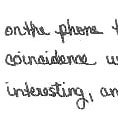 on the phone
coincidence
interesting, an